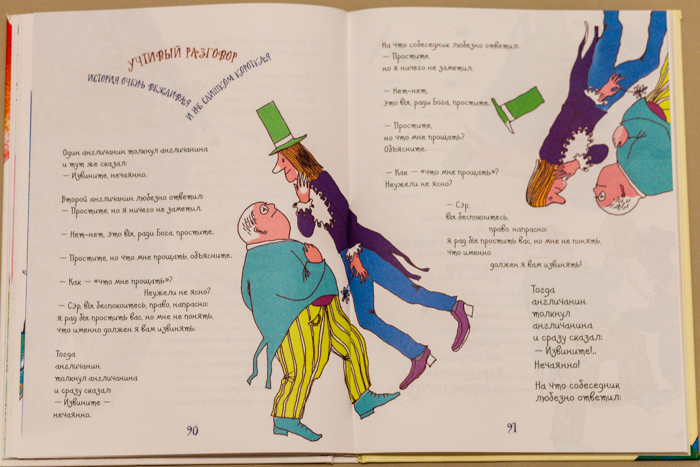 УЧТИВЫЙ РАЗГОВОР
ИСТОРИЯ ОЧЕНЬ ВЕЖЛИВАЯ
И НЕ СЛИШКОМ КОРОТКАЯ
Один англичанин толкнул англичанина
и тут же сказал:
— Извините, нечаянно.
Второй англичанин любезно ответил:
— Простите, но я ничего не заметил.
— Нет-нет, это вы, ради Бога, простите.
— Простите, но что мне прощать, объясните.
— Как — «что мне прощать»?
Неужели не ясно?
— Сэр, вы беспокоитесь, право, напрасно:
я рад бы простить вас, но мне не понять,
что именно должен я вам извинять.
Тогда
англичанин
толкнул англичанина
и сразу сказал:
— Извините —
нечаянно.
90
На что собеседник любезно ответил:
— Простите,
но я ничего не заметил.
— Нет-нет,
это вы, ради Бога, простите.
— Простите,
но что мне прощать?
Объясните.
— Как — «что мне прощать»?
Неужели не ясно?
— Сэр,
вы беспокоитесь,
право, напрасно:
я рад бы простить вас, но мне не понять,
что именно
должен я вам извинять!
Тогда
англичанин
толкнул
англичанина
и сразу сказал:
— Извините!..
Нечаянно!
На что собеседник
любезно ответил:
91